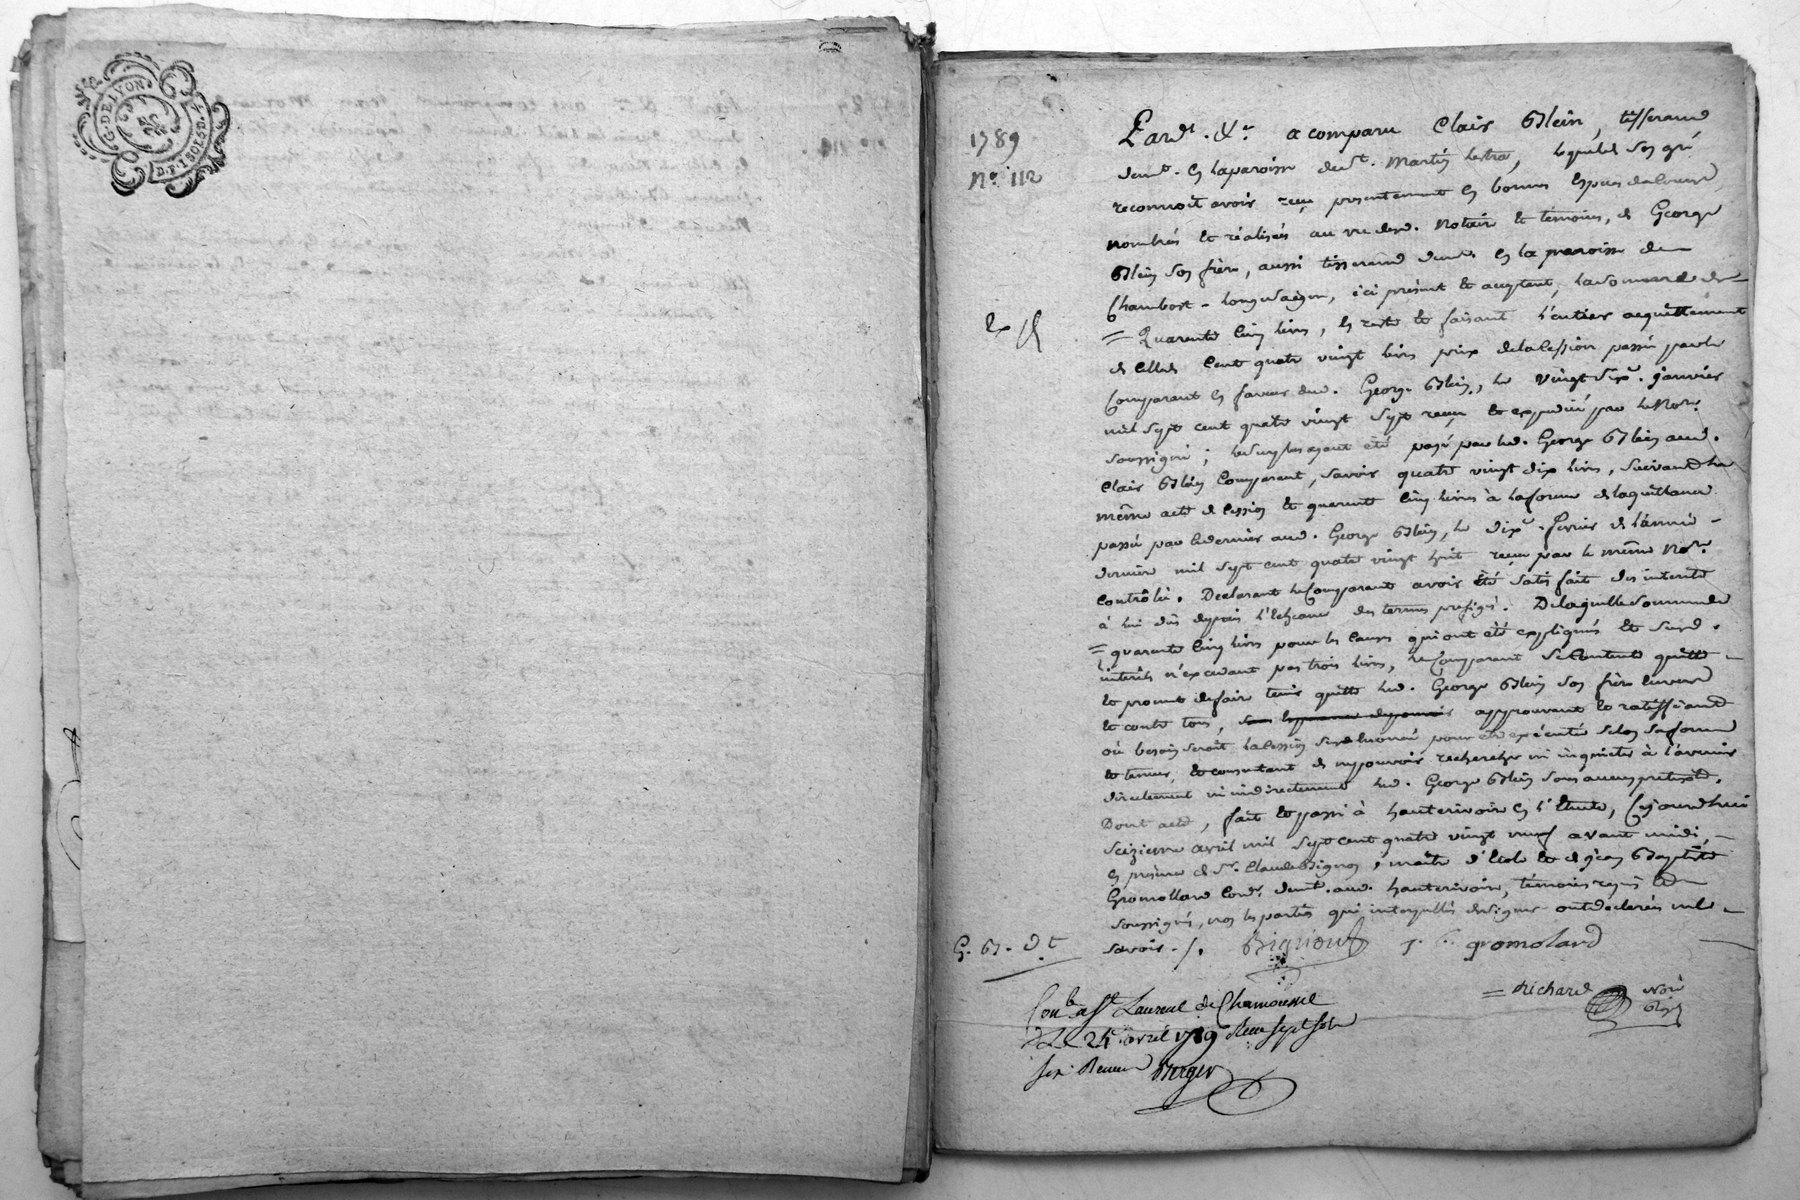 G. DE LYON
D. P. 1 SOL 5 D. 4
1789
N.° 112
Pardt. &c. a comparu Clair Blein, tisserand
demt. en la paroisse de St. Martin Lestra, lequel de son gré
reconnoit avoir reçu presentement en bonnes espèces de cours,
nombrés et réalisés au vu desd. Notaire et témoins, de George
Blein son frère, aussi tisserand demt. en la paroisse de
Chambost-Longessaigne, ici présent et acceptant, la somme de
= Quarante cinq livres, le reste et faisant l'entier acquittement
de celle de cent quatre vingt livres prix de la cession passée par le
Comparant en faveur dud. George Blein, le vingt six janvier
mil sept cent quatre vingt sept reçu et expédié par le Notre.
soussigné ; le surplus ayant été payé par led. George Blein aud.
Clair Blein Comparant, savoir quatre vingt dix livres, suivant le
même acte de cession et quarante cinq livres à la forme de la quittance
passée par ce dernier aud. George Blein, le dix fevrier de l'année
dernière mil sept cent quatre vingt huit reçue par le même Notre.
Contrôlée. Declarant le Comparant avoir été satisfait des interets
à lui dûs depuis l'échéance des termes prefigés. De laquelle somme de
= quarante cinq livres pour les causes qui ont été expliqués et sesd.
interêts n'excedant pas trois livres, le Comparant se contente quitte
et promet de faire tenir quitte led. George Blein son frère envers
et contre tous, approuvant et ratiffiant
où besoin seroit la cession susd. pour être exécutée selon sa forme
et teneur, et consentant de ne pouvoir rechercher ni inquieter à l'avenir
directement ni indirectement led. George Blein sous aucun pretexte.
Dont acte, fait et passé à hauterivoire en l'Etude, Cejourd'hui
seizieme avril mil sept cent quatre vingt neuf avant midi,
en présence de Sr. Claude Bignon, maitre d'Ecole et de Jean Baptiste
Gromollard demt. aud. hauterivoire, témoins requis et
soussignés, non les parties qui interpellés de signer ont declarés ne le
savoir ./.
G. B. Dt.
Bignon
J. B. gromolard
= Richard
Contlé. a St. Laurent de Chamousset
le 24 avril 1789 Reçu sept sols
six deniers Berger